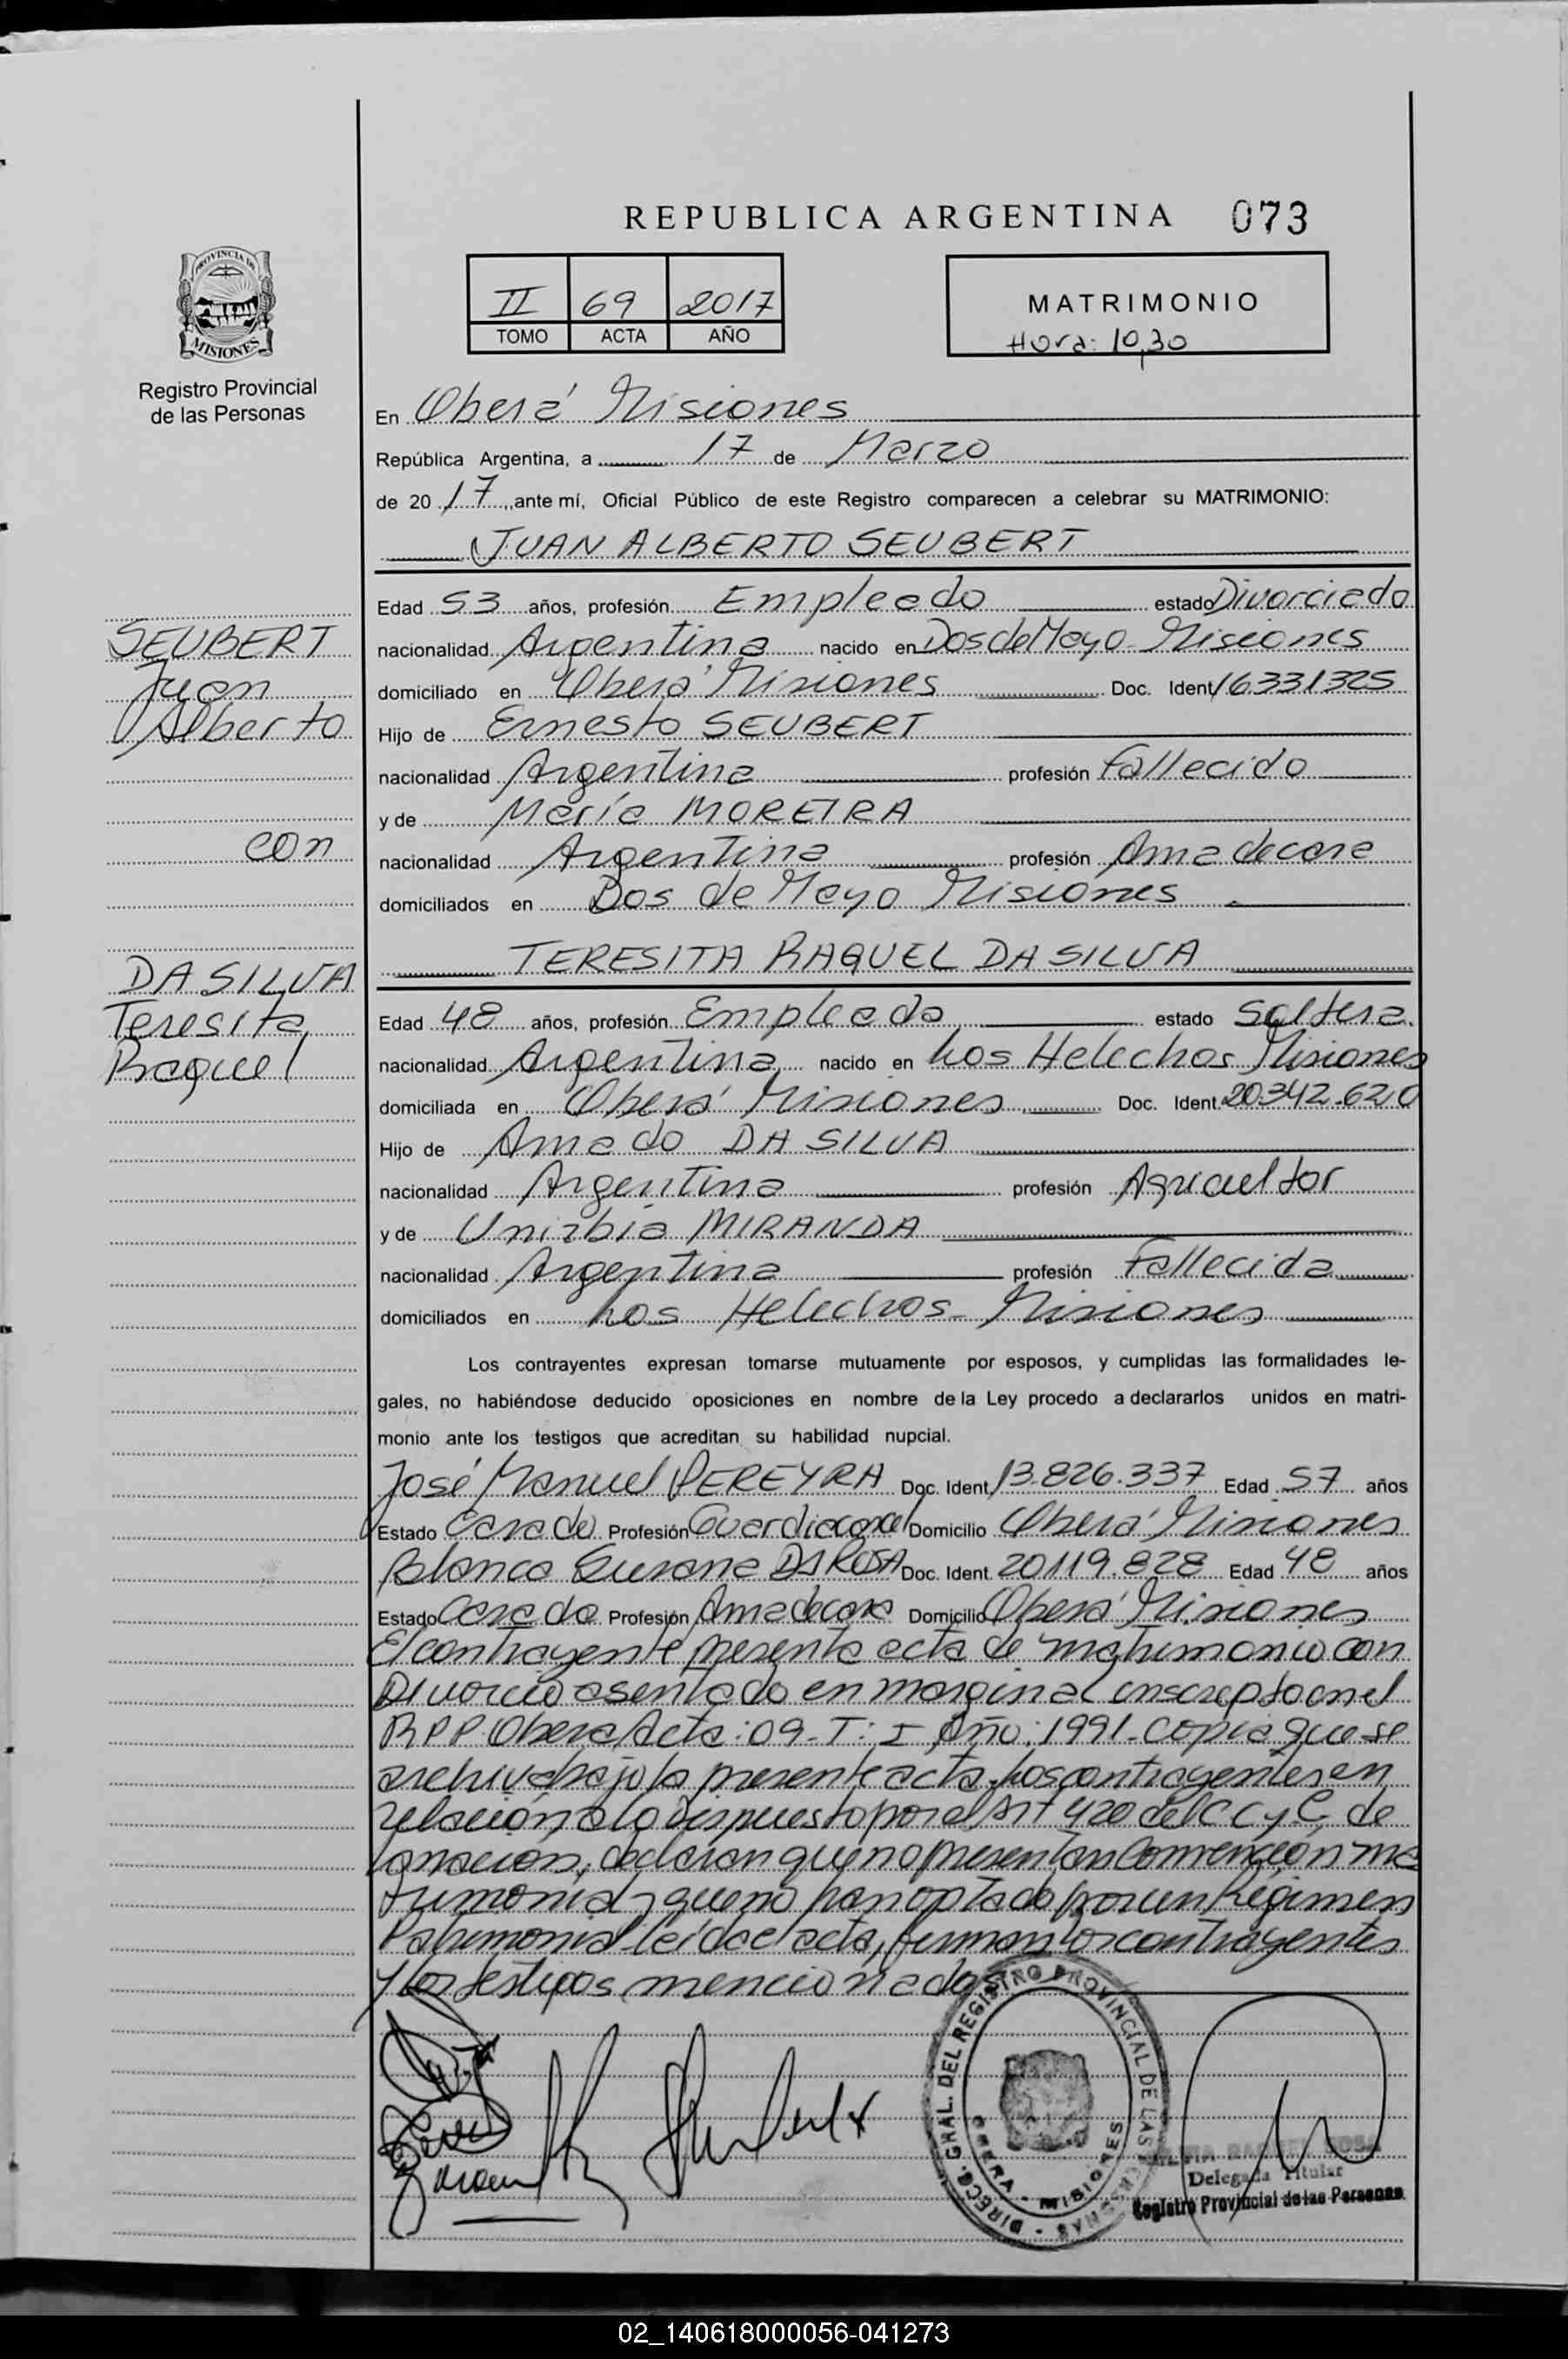 REPUBLICA ARGENTINA 073
PROVINCIA DE
MISIONES
Registro Provincial
de las Personas
II 69 2017
TOMO ACTA AÑO
MATRIMONIO
Hora: 10,30
En Oberá Misiones
República Argentina, a 17 de Marzo
de 20 17, ante mí, Oficial Público de este Registro comparecen a celebrar su MATRIMONIO:
JUAN ALBERTO SEUBERT
Edad 53 años, profesión Empleado estado Divorciado
SEUBERT
nacionalidad Argentina nacido en Dos de Mayo Misiones
Juan
domiciliado en Oberá Misiones Doc. Ident 16331325
Alberto
Hijo de Ernesto SEUBERT
nacionalidad Argentina profesión Fallecido
y de María MOREIRA
con
nacionalidad Argentina profesión Ama de casa
domiciliados en Dos de Mayo Misiones
TERESITA RAQUEL DA SILVA
DA SILVA
Teresita
Edad 48 años, profesión Empleada estado Soltera
Raquel
nacionalidad Argentina nacido en Los Helechos Misiones
domiciliada en Oberá Misiones Doc. Ident. 20.342.620
Hijo de Amado DA SILVA
nacionalidad Argentina profesión Agricultor
y de MIRANDA
nacionalidad Argentina profesión Fallecida
domiciliados en Los Helechos - Misiones
Los contrayentes expresan tomarse mutuamente por esposos, y cumplidas las formalidades le-
gales, no habiéndose deducido oposiciones en nombre de la Ley procedo a declararlos unidos en matri-
monio ante los testigos que acreditan su habilidad nupcial.
José Manuel PEREYRA Doc. Ident 13.826.337 Edad 57 años
Estado Casado Profesión Domicilio Oberá Misiones
Blanca Susana DA ROSA Doc. Ident. 20119.828 Edad 48 años
Estado Casada Profesión Ama de casa Domicilio Oberá Misiones
El contrayente presenta acta de matrimonio con
Divorcio asentado en marginal inscripto en el
RPP Obera Acta: 09 - T: I Año: 1991 - copia que se
archiva bajo la presente acta. Los contrayentes en
relación a lo Dispuesto por el Art 420 del C C y C, de
la nación, declaran que no presentan Convención ma
trimonial y que no han optado por un Régimen
Patrimonial leída el acta, firman los contrayentes
y los testigos mencionados
DIRECC. GRAL. DEL REGISTRO PROVINCIAL DE LAS PERSONAS
OBERA - MISIONES
Delegada Titular
Registro Provincial de las Personas
02_140618000056-041273